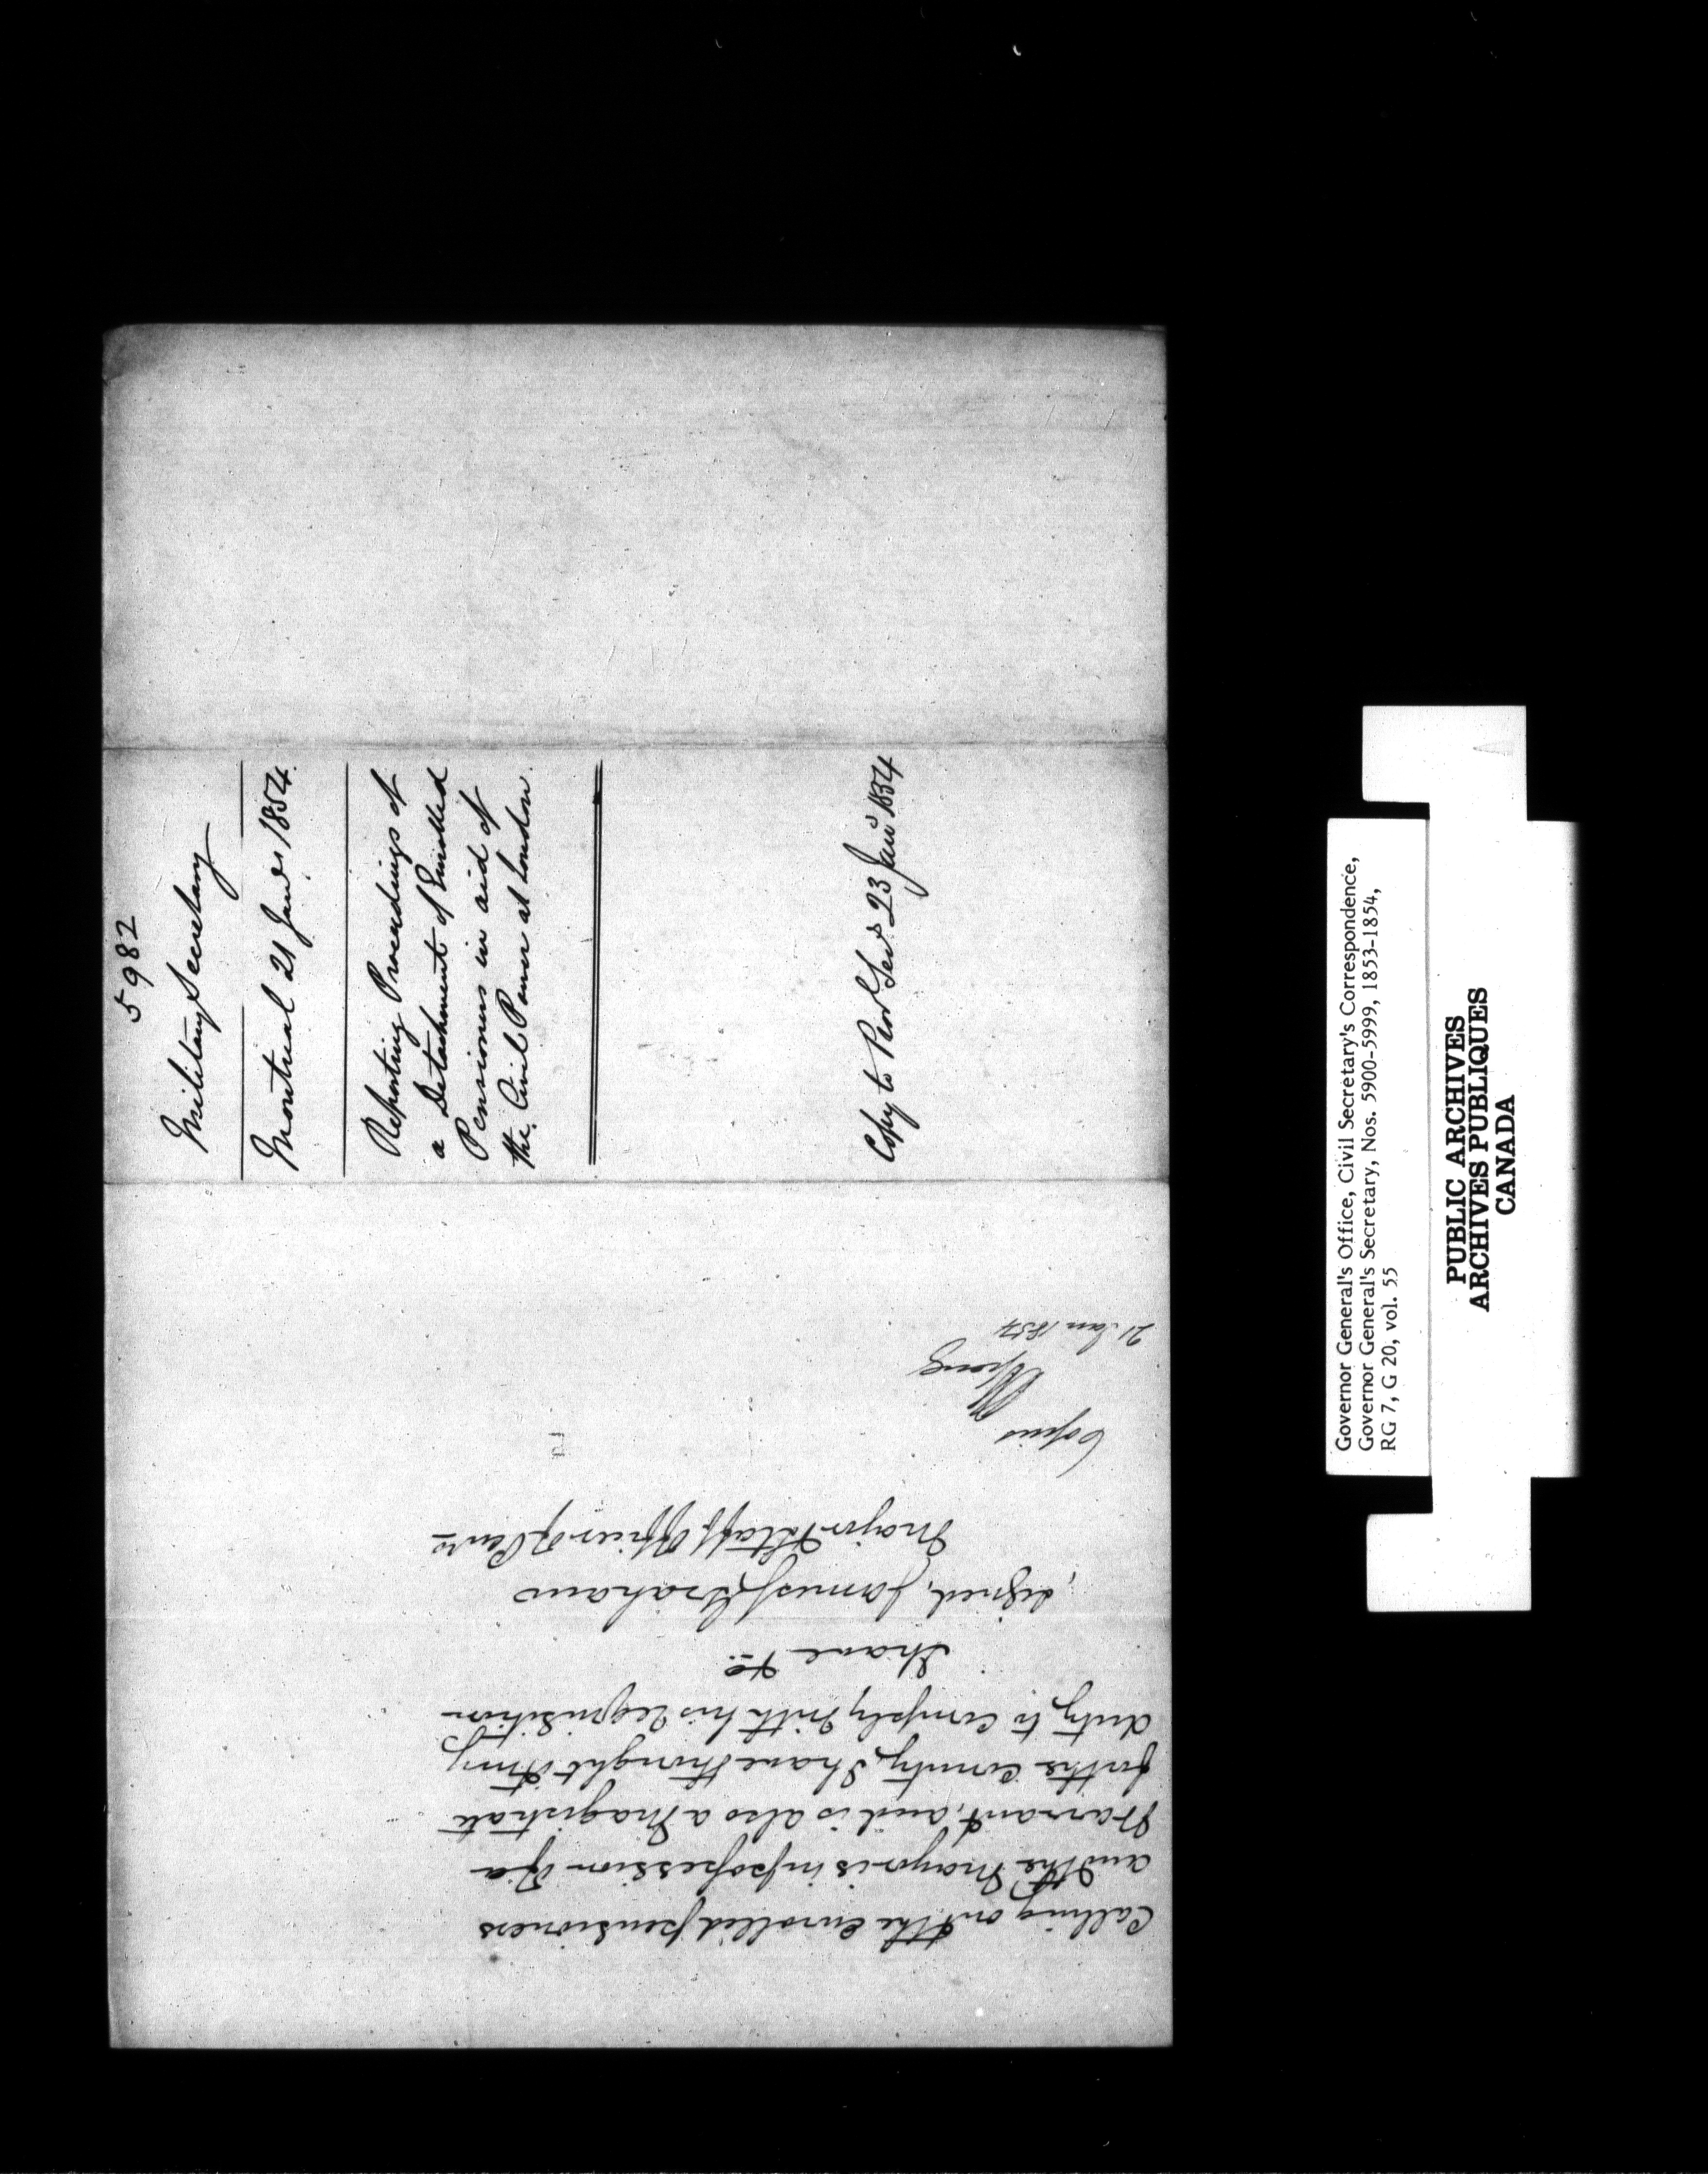 5982
Military Secretary
Montreal 21 Jany 1854.
Reporting Proceedings of
a Detachment of Enrolled
Pensioners in aid of
the Civil Power at London.
Copy to Prov Secy 23 Jany 1854
Calling out the enrolled pensioners
and the Mayor is in possession of a
Warrant, and is also a Magistrate
for the County, I have thought it my
duty to comply with his requisition
I have &c
signed, James Graham
Major & Staff Officer of Pens
Copies
21 Jan 1854
Governor General's Office, Civil Secretary's Correspondence,
Governor General's Secretary, Nos. 5900-5999, 1853-1854,
RG 7, G 20, vol. 55
PUBLIC ARCHIVES
ARCHIVES PUBLIQUES
CANADA